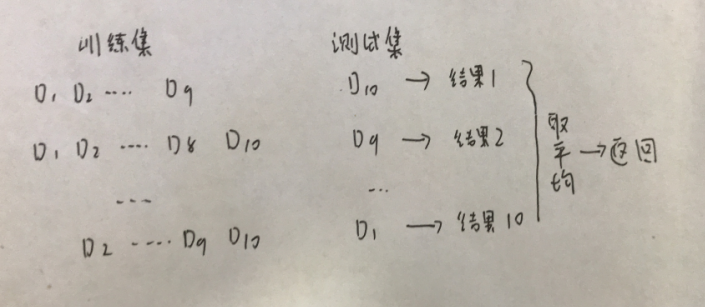 训练集 测试集
D1 D2 .... D9 D10 → 结果1
D1 D2 .... D8 D10 D9 → 结果2
... ...
D2 ..... D9 D10 D1 → 结果10
取平均 → 返回